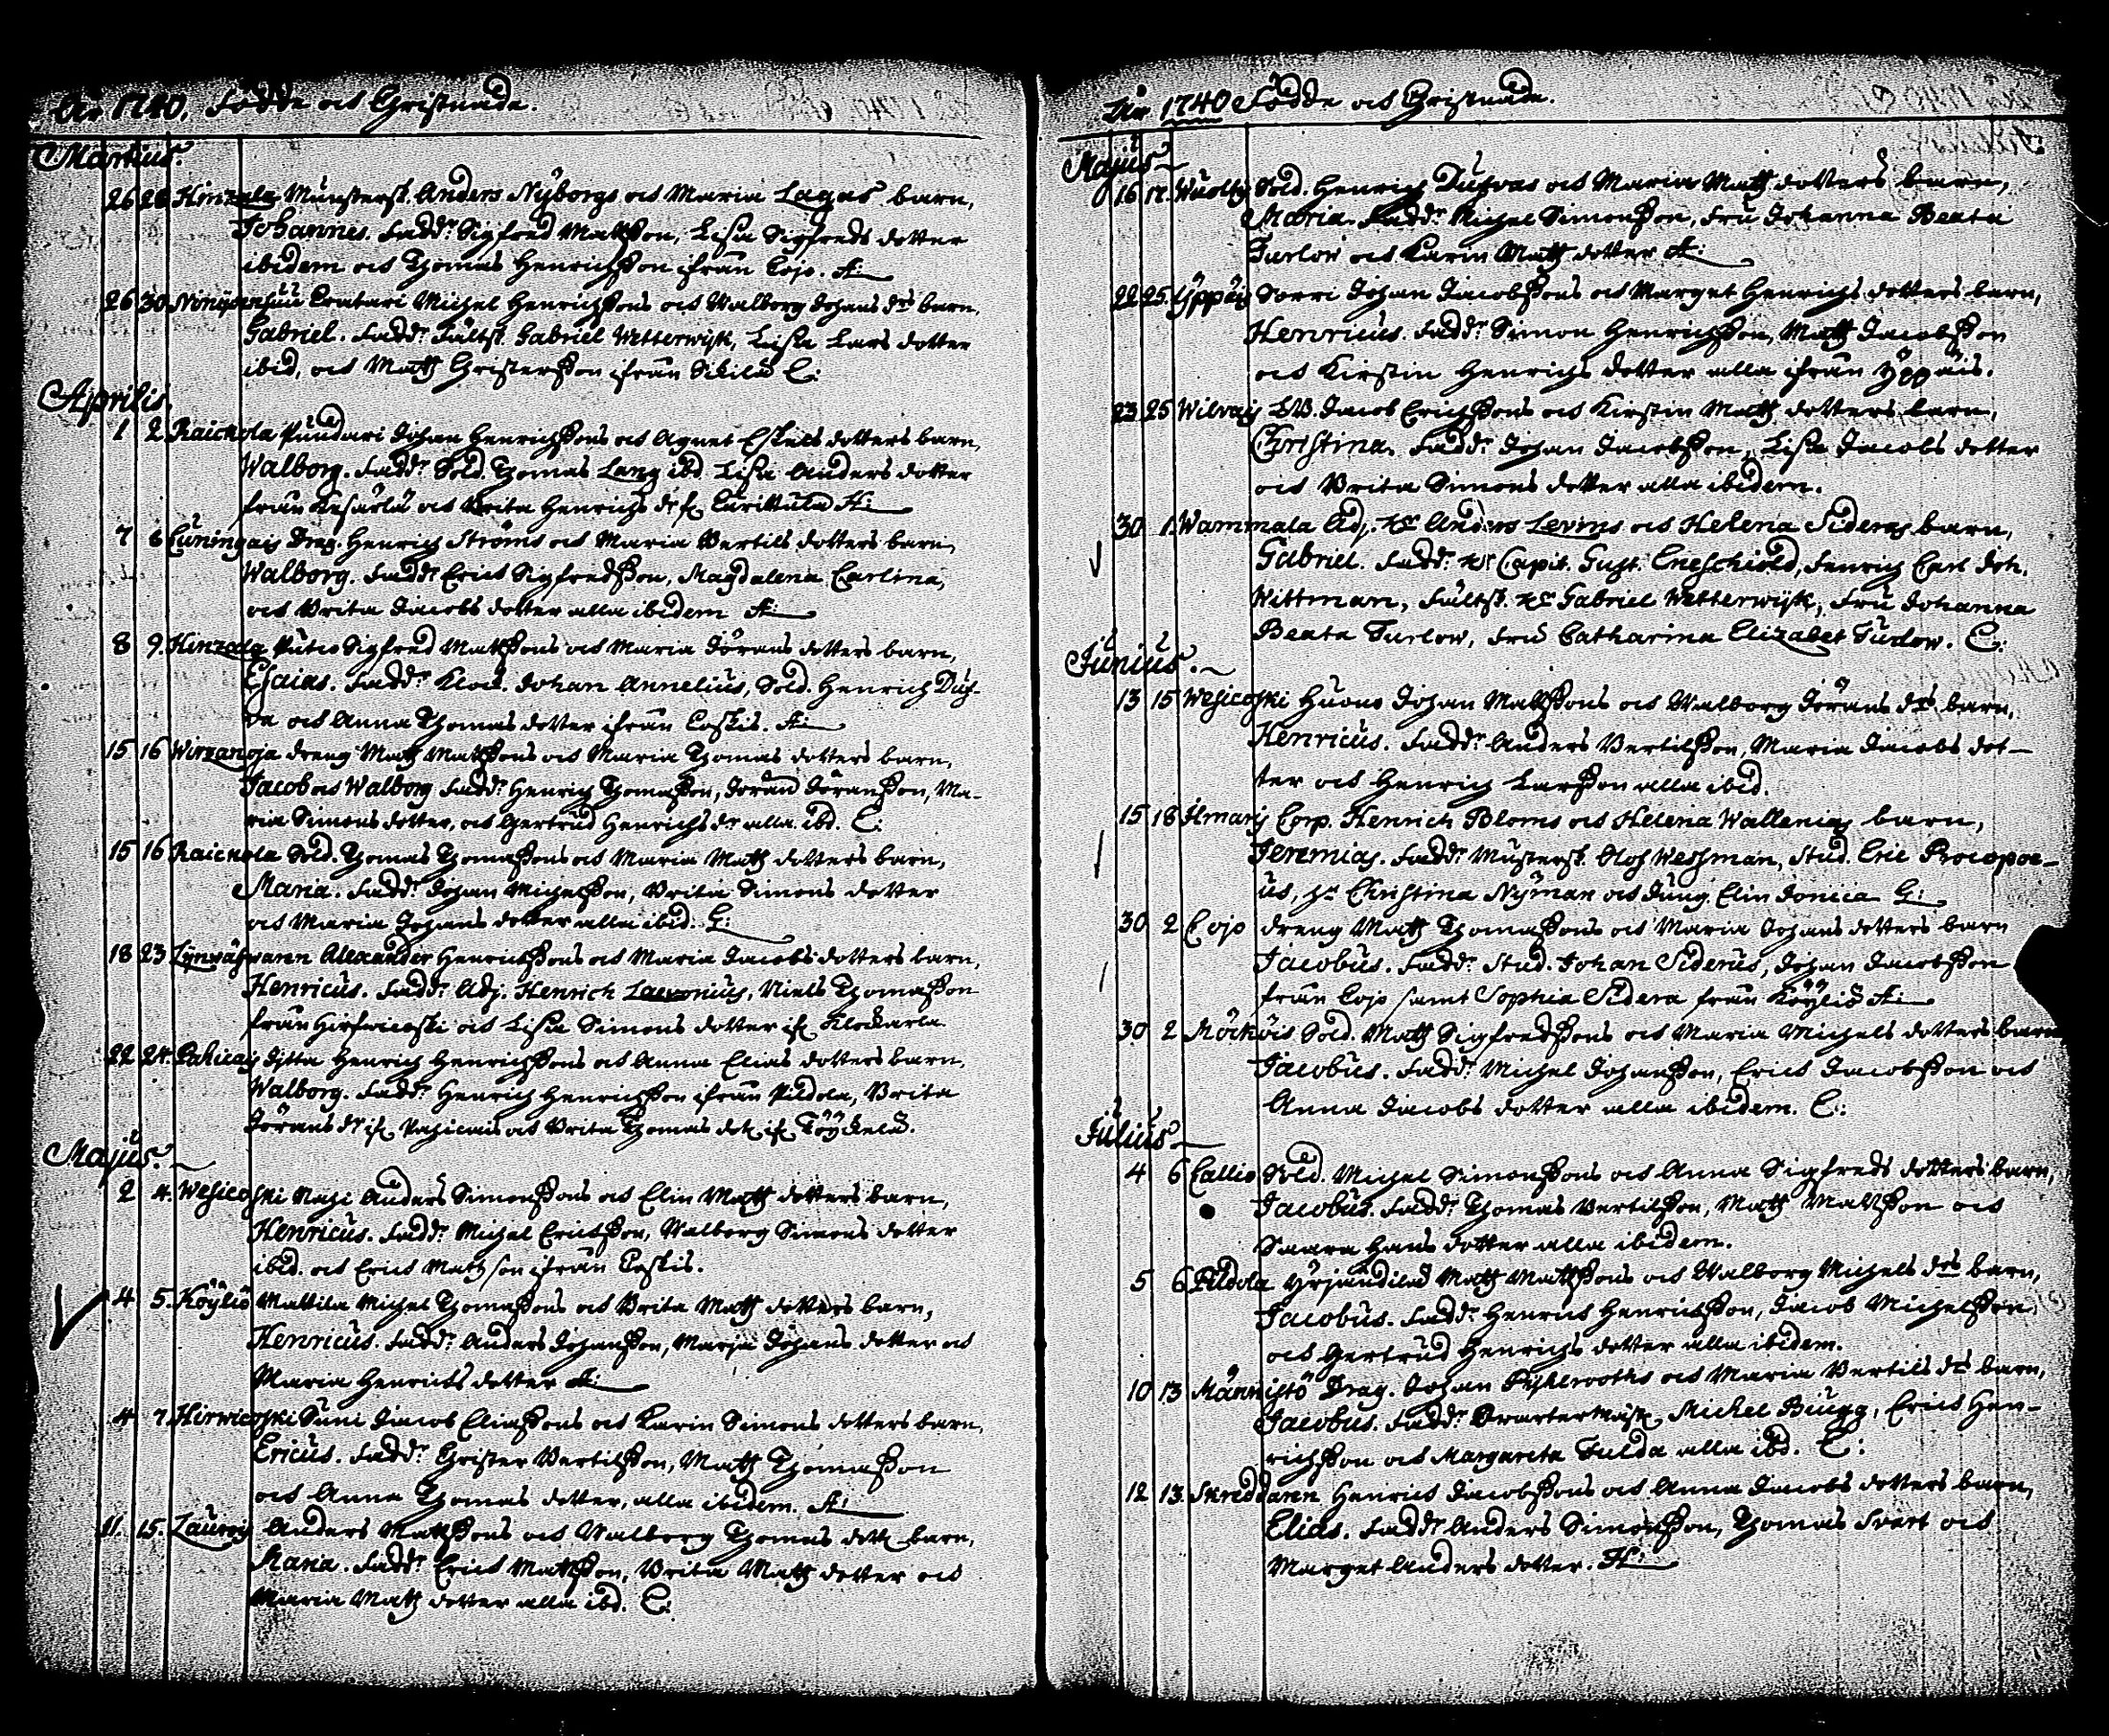 År 1740. Födde och Christnade.
Martius.
26 28 Hinzala Munsterskr. Anders Nyborgs och Maria Lagas barn,
Johannes. Faddr. Sigfred Matsson, Lisa Sigfreds dotter
ibidem och Thomas Henrichsson ifrån Cojo. A:
26 30 Cratari Michel Henrichssons och Walborg Johans dr barn,
Gabriel. Faddr. Fältsk. Gabriel Wetterwijk, Lisa Lars dotter
ibid, och Matth Christersson ifrån Sikilä C:
Aprilis.
1 2 Raickola Pundari Johan Henrichssons och Agnet Eskels dotters barn,
Walborg. Faddr. Sold. Thomas Lang ibd. Lisa Anders dotter
från Kesärlä och Brita Henrichs dr fr. A:
7 6 Cuningais Drag. Henrich Ströms och Maria Bertils dotters barn,
Walborg. Faddr. Erich Sigfredsson, Magdalena Carlina,
och Brita Jacobs dotter alla ibidem A:
8 9. Hinzala Putio Sigfred Matssons och Maria Jörans dotters barn,
Esaias. Faddr. Klock. Johan Annelius, Sold. Henrich Duf-
va och Anna Thomas dotter ifrån Coskis. A:
15 16 Wirzanoja dreng Matth Matssons och Maria Thomas dotters barn,
Jacob och Walborg Faddr. Henrich Thomasson, Jöran Jöransson, Ma-
ria Simons dotter, och Gertrud Henrichs dr alla ibd. C:
15 16 Raickola Sold. Thomas Thomassons och Maria Matth dotters barn,
Maria. Faddr. Johan Michelsson, Brita Simons dotter
och Maria Johans dotter alla ibid. C:
18 23 Alexander Henrichssons och Maria Jacobs dotters barn,
Henricus. Faddr. Adj. Henrich Laevonius, Niels Thomasson
från Hirfwicoski och Lisa Simons dotter if. Klockarla.
22 24. Pahicais Ditta Henrich Henrichssons och Anna Elias dotters barn.
Walborg. Faddr. Henrich Henrichsson ifrån Pildola, Brita
Jörans dr if. Pahicais och Brita Thomas dotr if. Töyckelä.
Majus.
2 4. Wesicoski Anders Simonssons och Elin Matth dotters barn,
Henricus. Faddr. Michel Erichsson, Walborg Simons dotter
ibid. och Erich Matzson ifrån Coskis.
4 5. Köyliö Mattila Michel Thomassons och Brita Matth dotters barn,
Henricus. Faddr. Anders Johansson, Marja Johans dotter och
Maria Henrichs dotter A:
4 7. Hirwicoski Suni Jacob Eliassons och Karin Simons dotters barn,
Ericus. Faddr. Christer Bertilsson, Matth Thomasson
och Anna Thomas dotter, alla ibidem. A:
11. 15. Laurois Anders Matssons och Walborg Thomas dottr barn,
Maria. Faddr. Erich Matsson, Brita Matth dotter och
Maria Matth dotter alla ibd. C:
År 1740 Födde och Christnade.
Majus
16 17. Sold. Henrich Dufvas och Maria Matth dotters barn,
Maria. Faddr. Michel Simonsson, Fru Johanna Beata
Furlow och Karin Matth dotter A:
22 25. Yppäis Sorri Johan Jacobssons och Marget Henrichs dotters barn,
Henricus. Faddr. Simon Henrichsson, Matth Jacobsson
och Kirstin Henrichs dotter alla ifrån Yppäis.
23 25 Wilvais Jacob Erichssons och Kirstin Matth dotters barn,
Christina. Faddr. Johan Jacobsson, Lisa Jacobs dotter
och Brita Simons dotter alla ibidem.
30 1. Wammala Adj. Hr Anders Levins och Helena Sideras barn,
Gabriel. Faddr. Hr Capit. Gust. Eneschiöld, Fenrich Carl Joh.
Wittman, Fältsk. Hr Gabriel Wetterwijk, Fru Johanna
Beata Furlow, Fru Catharina Elizabet Furlow. C:
Junius.
13 15 Wesicoski Huono Johan Matssons och Walborg Jörans drs barn,
Henricus. Faddr. Anders Bertilsson, Maria Jacobs dot-
ter och Henrich Larsson alla ibid.
15 18 Ilmaris Corp. Henrich Bloms och Helena Wallenias barn,
Jeremias. Faddr. Mustersk. Olof Wessman, Stud. Eric Procopoe-
us, Christina Nyman och Jung. Elin Jonica C:
30 2 Cojo dreng Matth Thomassons och Maria Johans dotters barn
Jacobus. Faddr. Stud. Johan Siderus, Johan Jacobsson
från Cojo samt Sophia Sidera från Köyliö A:
30 2 Mörköis Sold. Matth Sigfredssons och Maria Michels dotters barn
Jacobus. Faddr. Michel Johansson, Erich Jacobsson och
Anna Jacobs dotter alla ibidem. C:
Julius
4 6 Callio Sold. Michel Simonssons och Anna Sigfreds dotters barn,
Jacobus. Faddr. Thomas Bertilsson, Matth Matsson och
Saara Hans dotter alla ibidem.
5 6 Pildola Yrjändilä Matth Matssons och Walborg Michels drs barn,
Jacobus. Faddr. Henrich Henrichsson, Jacob Michelsson
och Gertrud Henrichs dotter alla ibidem.
10 13 Männistö Drag. Johan och Maria Bertils drs barn,
Jacobus. Faddr. Qvartermäst. Michel Biugg, Erich Hen-
richsson och Margareta Fulda alla ibd. C:
12 13. Henrich Jacobssons och Anna Jacobs dotters barn,
Elias. Faddr. Anders Simonsson, Thomas Svart och
Marget Anders dotter. A: